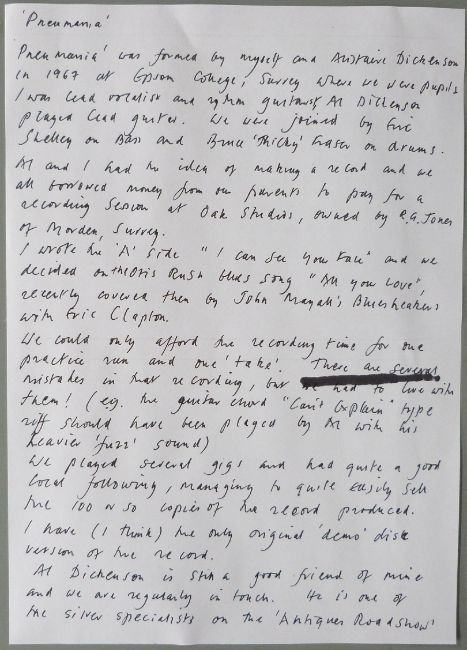 'Pneumania'
Pneumania' was formed by myself and Alistaire Dickenson
in 1967 at Epsom College, Surrey where we were pupils
I was lead vocalist and rythm guitarist, Al Dickenson
played lead guitar. We were joined by Eric
Shelley on Bass and Bruce 'Thicky' Fraser on drums.
Al and I had the idea of making a record and we
all borrowed money from our parents to pay for a
recording session at Oak Studios, owned by R.G. Jones
of Morden, Surrey.
I wrote the 'A' side "I can see your face" and we
decided on the Otis Rush blues song "All you Love",
recently covered then by John Mayall's Bluesbreakers
with Eric Clapton.
We could only afford the recording time for one
practice run and one 'take'. There are several
mistakes in that recording, but we had to live with
them! (eg. the guitar chord "Can't Explain" type
riff should have been played by Al with his
heavier 'fuzz' sound)
We played several gigs and had quite a good
local following, managing to quite easily sell
the 100 or so copies of the record produced.
I have (I think) the only original 'demo' disk
version of the record.
Al Dickenson is still a good friend of mine
and we are regularly in touch. He is one of
the silver specialists on the 'Antiques Roadshow'